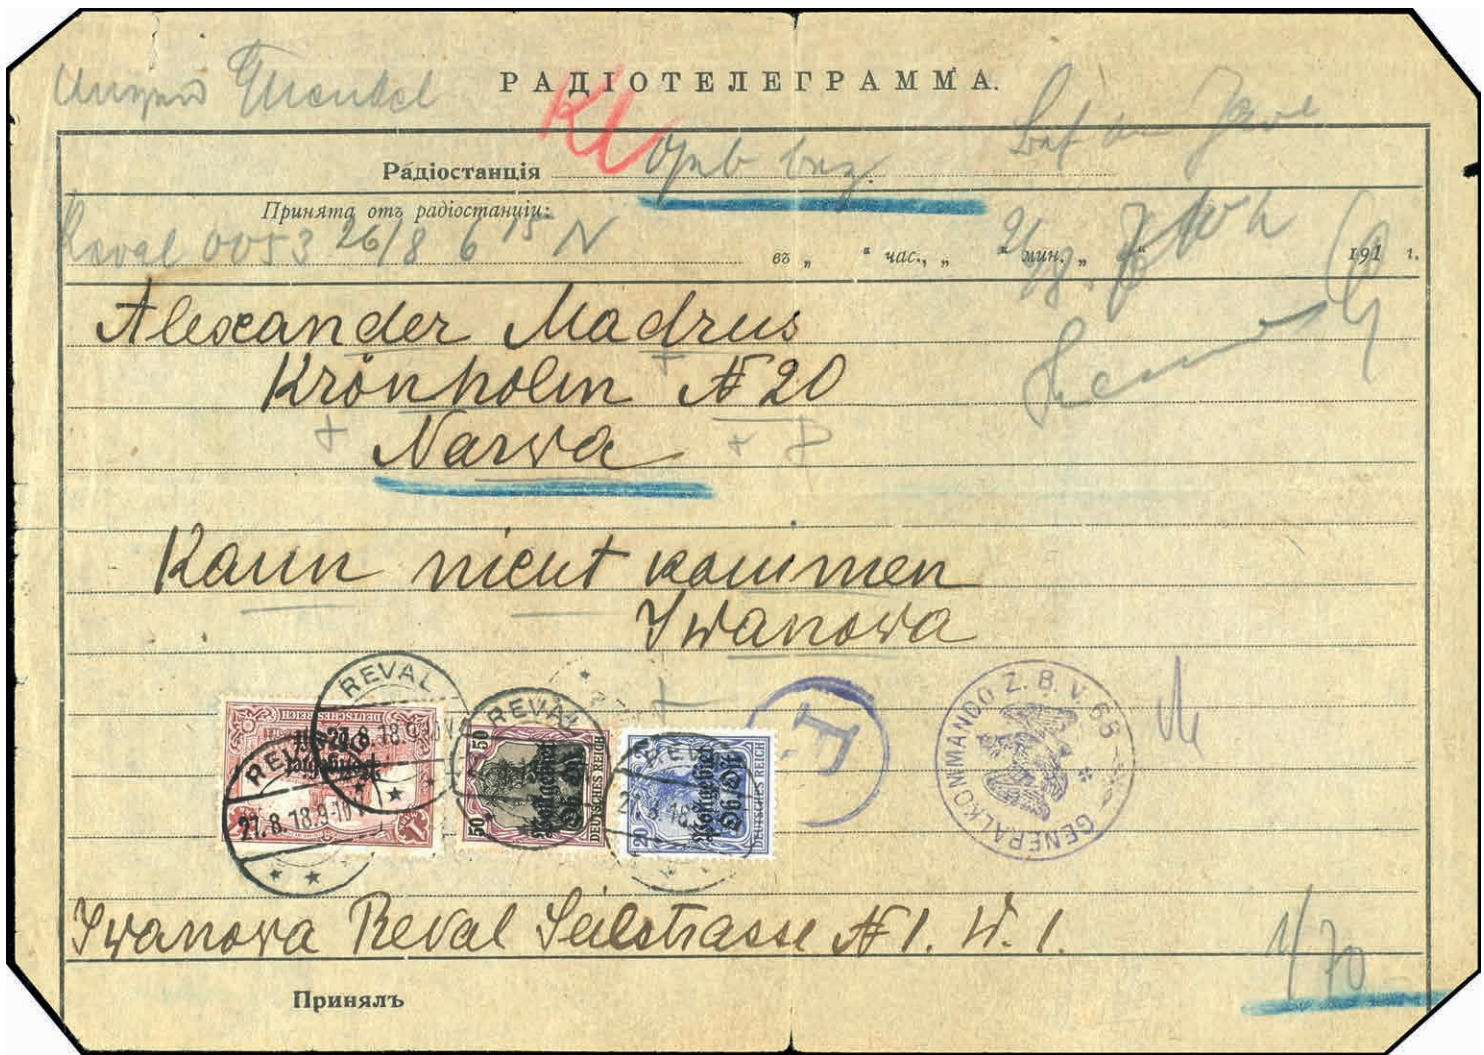 РАДІОТЕЛЕГРАММА.
KU
Радіостанція
Принята отъ радіостанціи:
Reval 0053 26/8 6 15 N
въ „ “ час., „ “ мин. „ “ 191 г.
Alexander Madrus
Krönholm № 20
Narva
Kann nicht kommen
Iwanowa
REVAL
27.8.18.9-10V
DEUTSCHES REICH
REVAL
50 50
Postgebiet
Ob. Ost
DEUTSCHES REICH
REVAL
27.8.18.
20
Postgebiet
Ob. Ost
DEUTSCHES REICH
REVAL
27.8.18.9-10V
1
T
GENERALKOMMANDO Z. B. V. 68
Iwanowa Reval Seilstrasse № 1. W. 1.
1/70
Принялъ